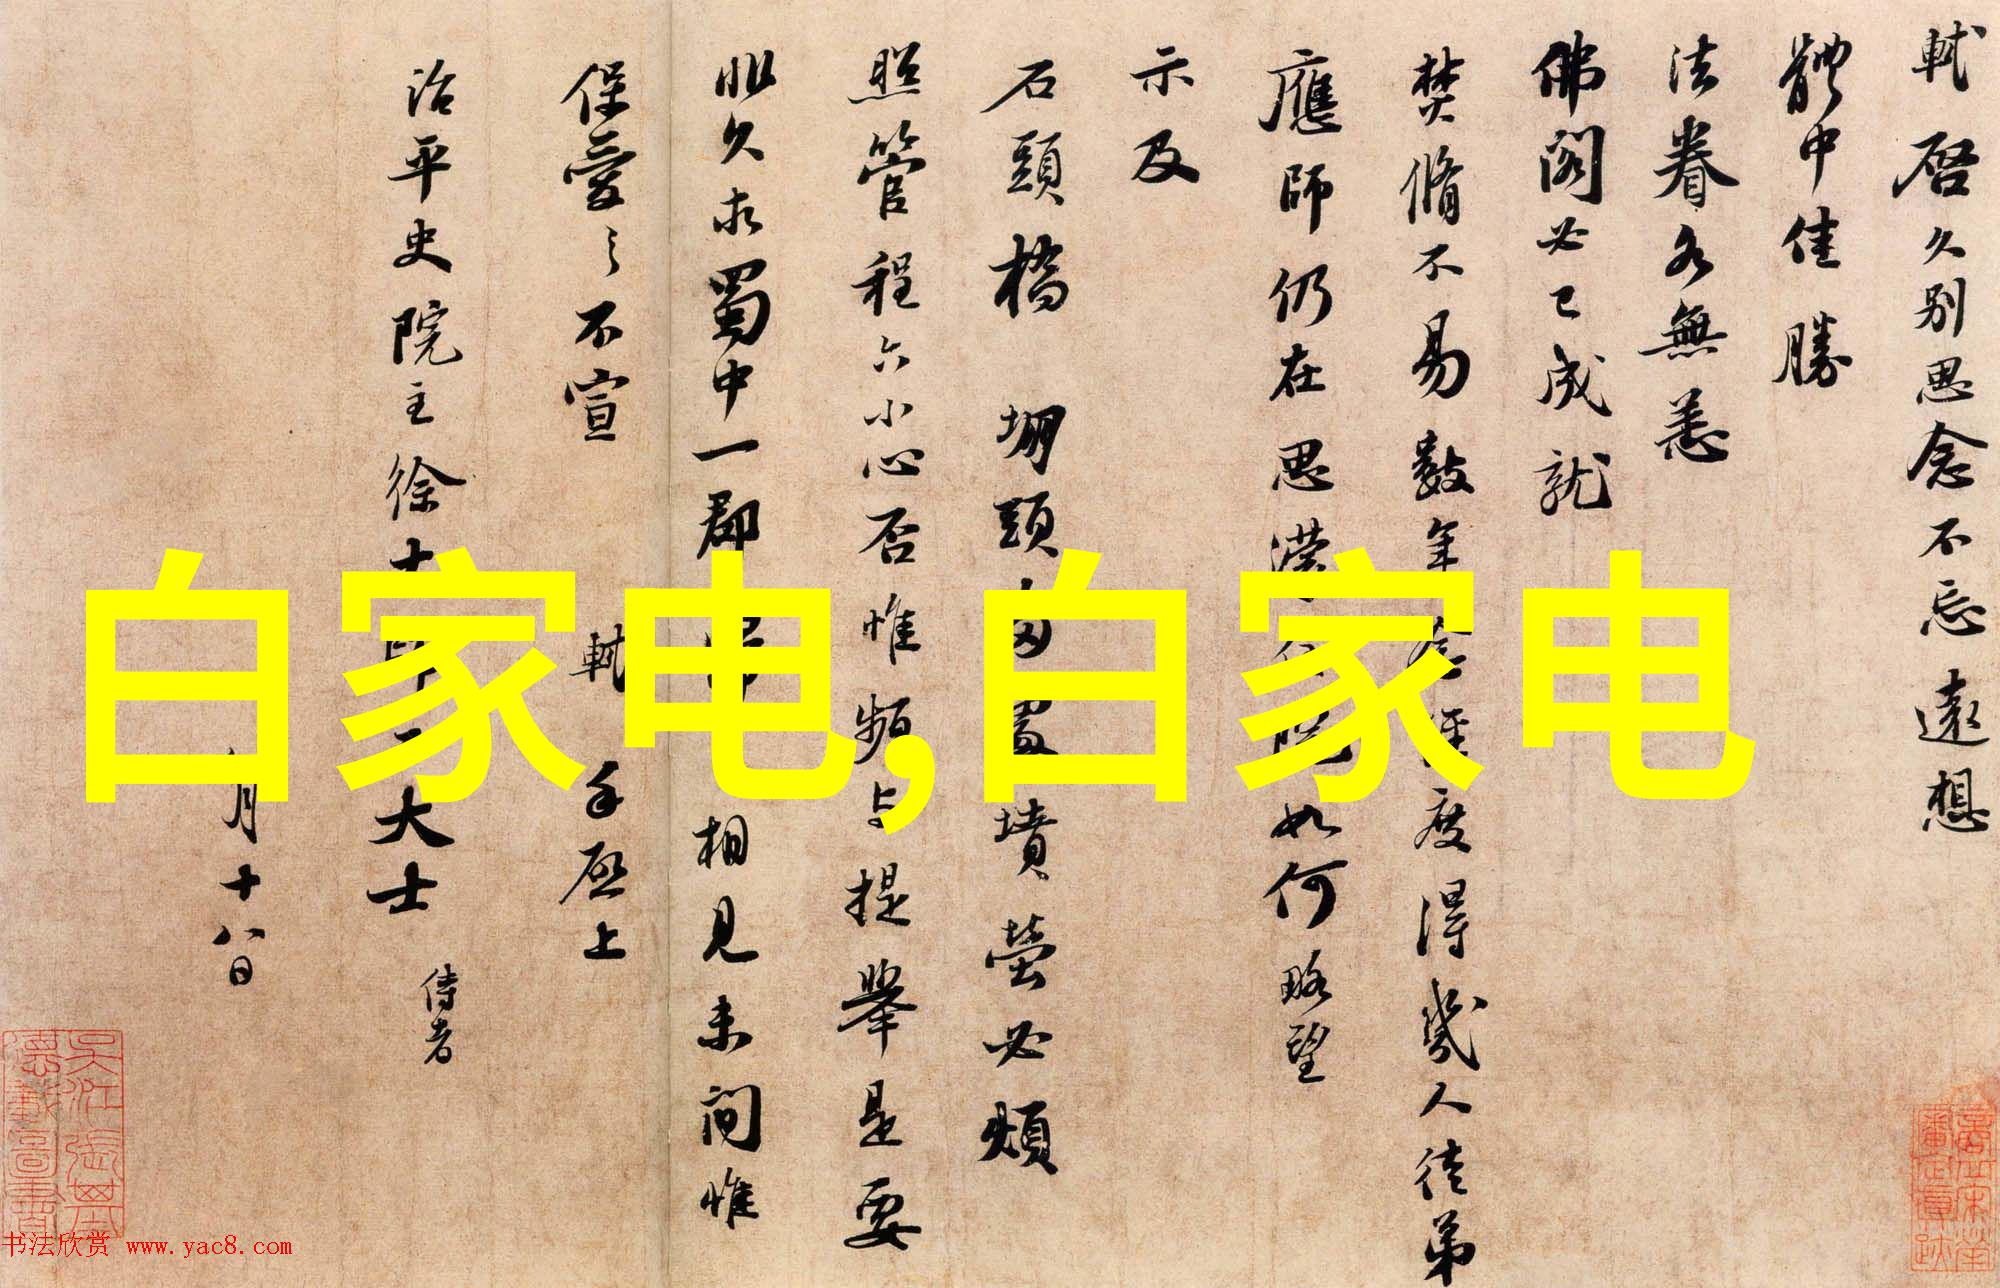 軾啓久别思念不忘遠想
體中佳勝
法眷各無恙
佛閣必已成就
焚脩不易數年度得幾人徒弟
應師仍在思如何略望
示及
石頭橋 堋頭墳塋必煩
照管程六小心否惟頻与提舉是要
非久求蜀中一郡相見未間惟
保愛之不宣 軾手啓上
治平史院主徐大士 侍者
月十八日
白家电,白家电
书法欣赏 www.yac8.com